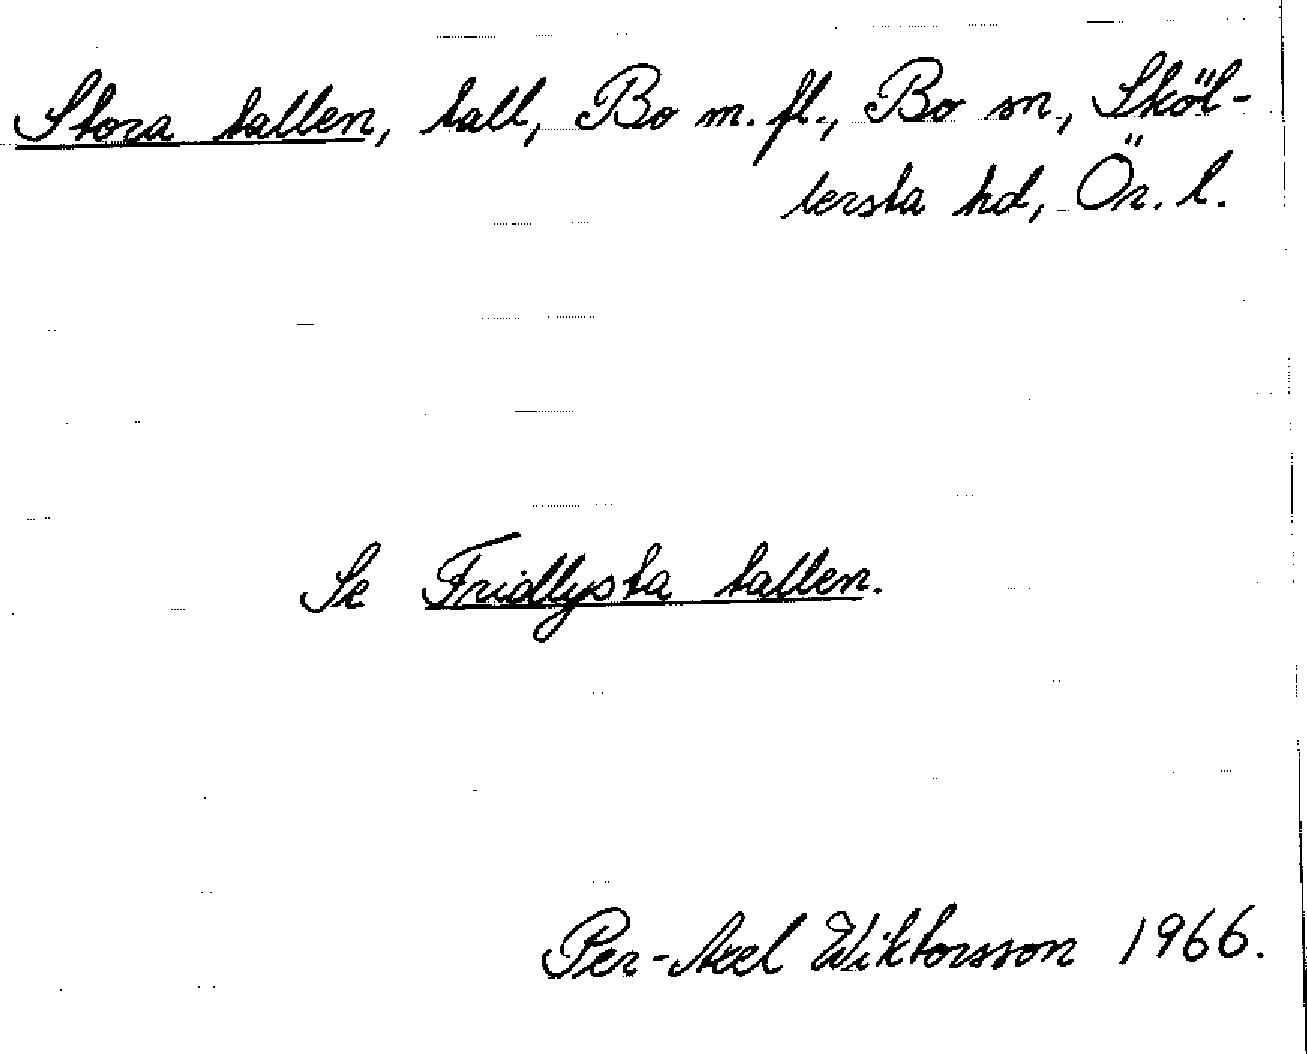 Stora tallen, tall, Bo m.fl., Bo sn, Sköl-
lersta hd, Ör. l.
Se Fridlysta tallen.
Per-Axel Wiktorsson 1966.